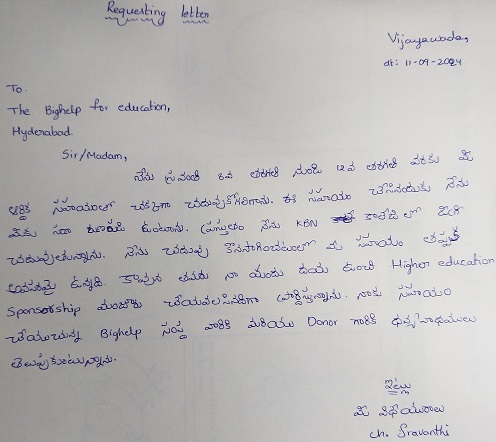 Requesting letter
Vijayawada,
dt: 11-09-2024
To
The Bighelp for education,
Hyderabad.
Sir/Madam,
నేను స్రవంతి 6వ తరగతి నుండి 12వ తరగతి వరకు మీ
ఆర్థిక సహాయంలో చక్కగా చదువుకోగలిగాను. ఈ సహాయం చేసినందుకు నేను
మీకు సదా ఉంటాను. ప్రస్తుతం నేను KBN కాలేజీ లో డిగ్రీ
చదువుతున్నాను. నేను చదువు కొనసాగించటంలో మీ సహాయం తప్పక
అవసరమై ఉన్నది. కావున తమరు నా యందు దయ ఉంచి Higher education
Sponsorship మంజూరు చేయవలసినదిగా ప్రార్థిస్తున్నాను. నాకు సహాయం
చేయుచున్న Bighelp సంస్థ వారికి మరియు Donor గారికి ధన్యవాధములు
తెలుపుకుంటున్నాను.
ఇట్లు
మీ విధేయురాలు
ch. Sravanthi